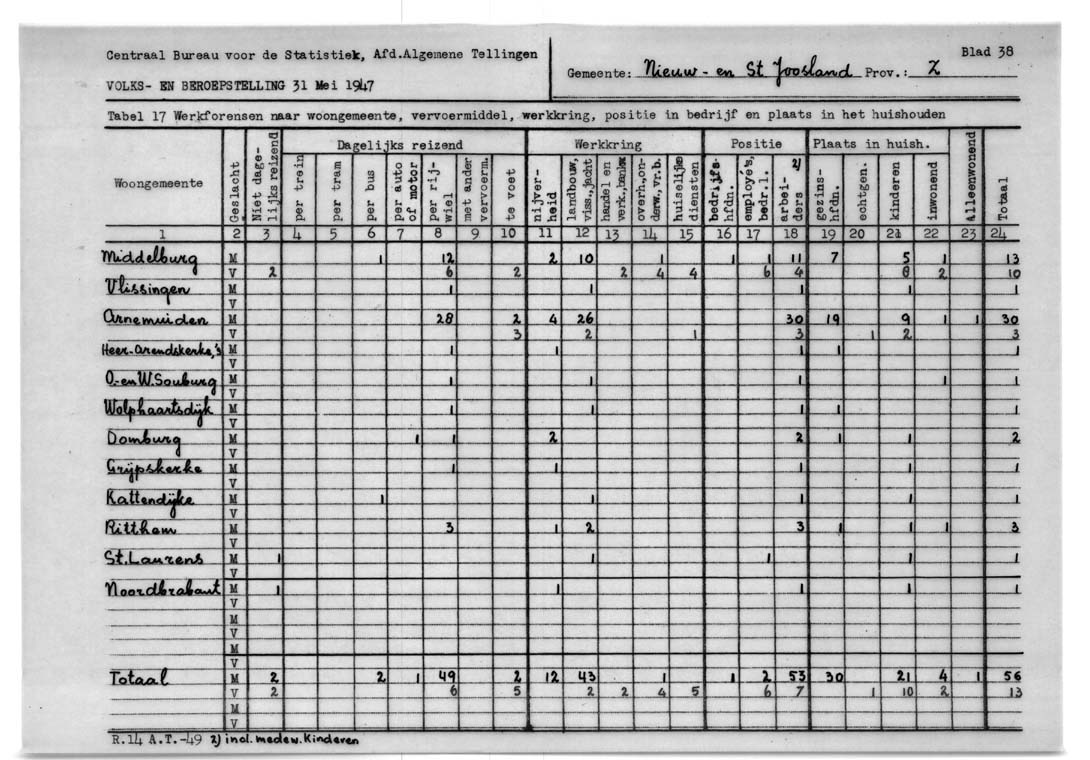 Centraal Bureau voor de Statistiek, Afd.Algemene Tellingen
VOLKS- EN BEROEPSTELLING 31 Mei 1947
Gemeente: Nieuw- en St Joosland Prov.: Z
Blad 38
Tabel 17 Werkforensen naar woongemeente, vervoermiddel, werkkring, positie in bedrijf en plaats in het huishouden
Woongemeente | Geslacht | Niet dage-lijks reizend | Dagelijks reizend | Werkkring | Positie | Plaats in huish. | Alleenwonend | Totaal
per trein | per tram | per bus | per auto of motor | per rij-wiel | met ander vervoerm. | te voet | nijver-heid | landbouw, viss.,jacht | handel en verk.,bankw | overh.,on-derw.,vr.b. | huiselijke diensten | bedrijfs-hfdn. | employé's, bedr.l. | arbei-ders 2) | gezins-hfdn. | echtgen. | kinderen | inwonend
1 2 3 4 5 6 7 8 9 10 11 12 13 14 15 16 17 18 19 20 21 22 23 24
Middelburg M 1 12 2 10 1 1 1 11 7 5 1 13
V 2 6 2 2 4 4 6 4 8 2 10
Vlissingen M 1 1 1 1 1
V
Arnemuiden M 28 2 4 26 30 19 9 1 1 30
V 3 2 1 3 1 2 3
Heer-Arendskerke,'s M 1 1 1 1 1
V
O.-en W.Souburg M 1 1 1 1 1
V
Wolphaartsdijk M 1 1 1 1 1
V
Domburg M 1 1 2 2 1 1 2
V
Grijpskerke M 1 1 1 1 1
V
Kattendijke M 1 1 1 1 1
V
Ritthem M 3 1 2 3 1 1 1 3
V
St.Laurens M 1 1 1 1 1
V
Noordbrabant M 1 1 1 1 1
V
M
V
M
V
Totaal M 2 2 1 49 2 12 43 1 1 2 53 30 21 4 1 56
V 2 6 5 2 2 4 5 6 7 1 10 2 13
M
V
R.14 A.T.-49 2) incl.medew.Kinderen